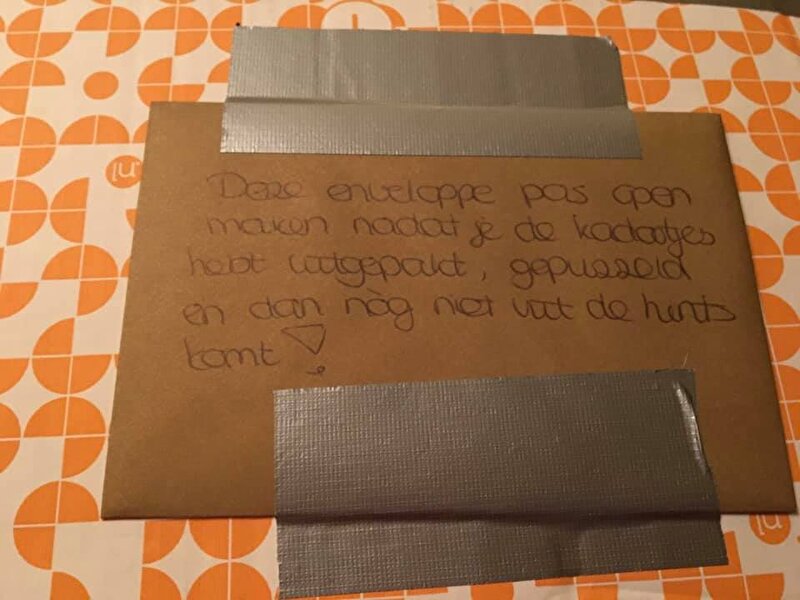 Deze enveloppe pas open
maken nadat je de kadootjes
hebt uitgepakt, gepuzzeld
en dan nòg niet uit de hints
komt!